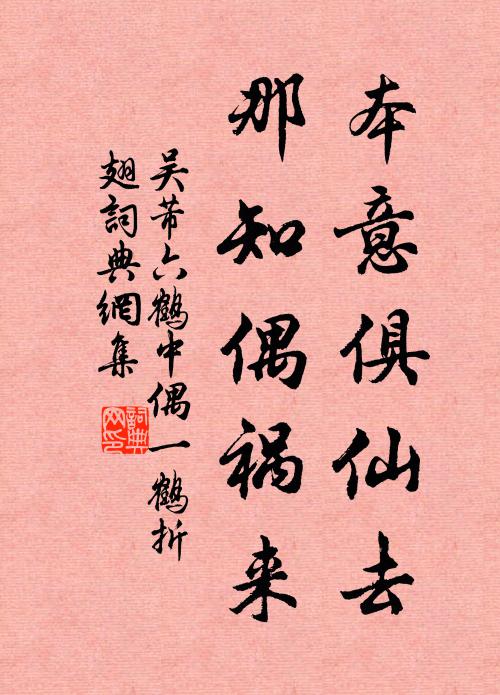 本意俱仙去
那知偶祸来
吴芾六鹤中偶一鹤折
翅詞典網集
詞典
网印